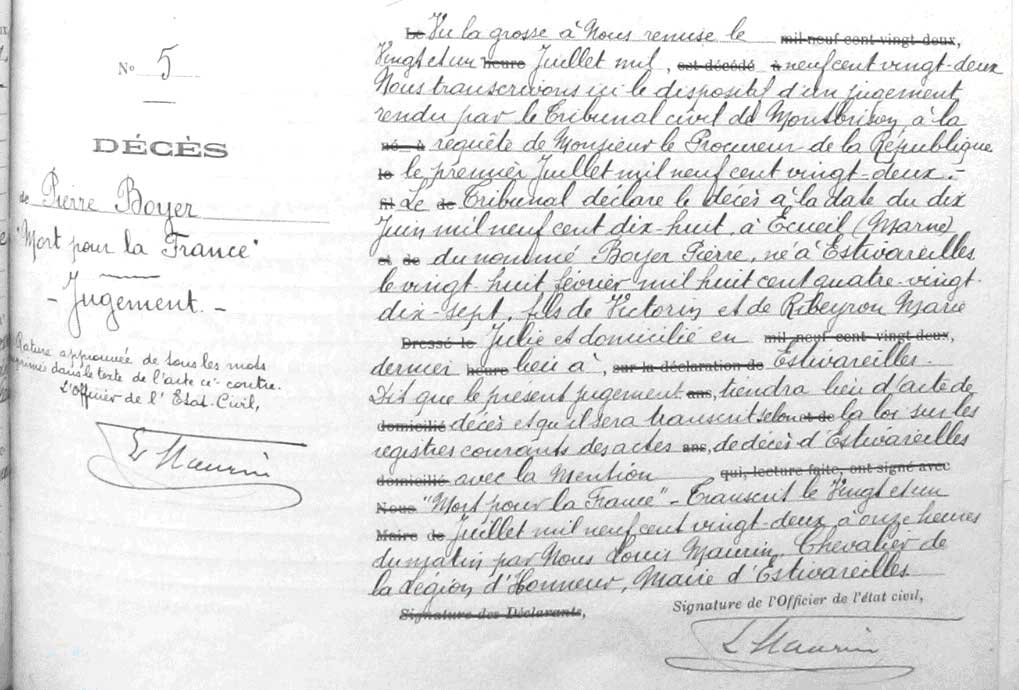 N° 5
DÉCÈS
de Pierre Boyer
"Mort pour la France"
- Jugement. -
Rature approuvée de tous les mots
imprimés dans le texte de l'acte ci-contre.
L'Officier de l'Etat-Civil,
L Maurin
Le Vu la grosse à Nous remise le mil neuf cent vingt-deux,
Vingt et un heure Juillet mil, est décédé à neuf cent vingt-deux
Nous transcrivons ici le dispositif d'un jugement
rendu par le Tribunal civil de Montbrison à la
né à requête de Monsieur le Procureur de la République
le le premier Juillet mil neuf cent vingt-deux.-
fil Le de Tribunal déclare le décès à la date du dix
Juin mil neuf cent dix-huit, à Ecueil (Marne)
et de du nommé Boyer Pierre, né à Estivareilles
le vingt-huit février mil huit cent quatre-vingt-
dix-sept, fils de Victorin et de Ribeyron Marie
Dressé le Julie et domicilié en mil neuf cent vingt-deux,
dernier heure lieu à, sur la déclaration de Estivareilles.
Dit que le présent jugement ans, tiendra lieu d'acte de
domicilié décès et qu'il sera transcrit selon et de la loi sur les
registres courants des actes ans, de décès d'Estivareilles
domicilié avec la Mention qui, lecture faite, ont signé avec
Nous "Mort pour la France" - Transcrit le Vingt et un
Maire de Juillet mil neuf cent vingt-deux à onze heures
du matin par Nous Louis Maurin, Chevalier de
la Légion d'Honneur, Maire d'Estivareilles
Signature des Déclarants, Signature de l'Officier de l'état civil,
L Maurin